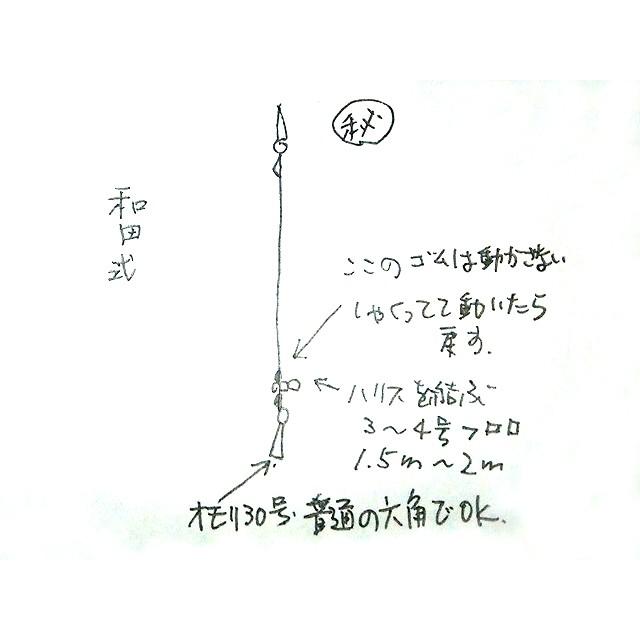 秘
和田式
ここのゴムは動かさない
しゃくってて動いたら
戻す.
ハリスを結ぶ
3〜4号フロロ
1.5m〜2m
オモリ30号 普通の六角でOK.